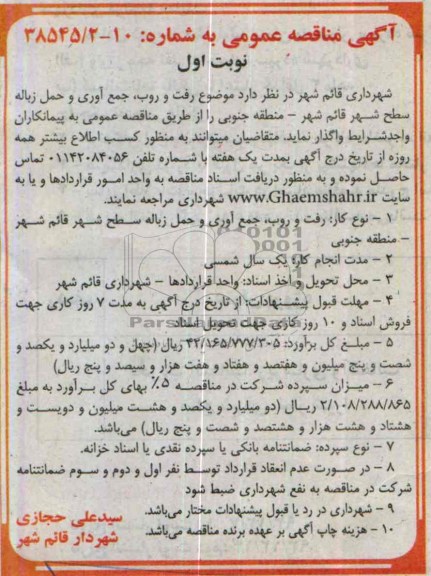 آگهی مناقصه عمومی به شماره: ۱۰-۳۸۵۴۵/۲
نوبت اول
شهرداری قائم شهر در نظر دارد موضوع رفت و روب، جمع آوری و حمل زباله
سطح شهر قائم شهر - منطقه جنوبی را از طریق مناقصه عمومی به پیمانکاران
واجدشرایط واگذار نماید. متقاضیان میتوانند به منظور کسب اطلاع بیشتر همه
روزه از تاریخ درج آگهی بمدت یک هفته با شماره تلفن ۰۱۱۴۲۰۸۴۰۵۶ تماس
حاصل نموده و به منظور دریافت اسناد مناقصه به واحد امور قراردادها و یا به
سایت www.Ghaemshahr.ir شهرداری مراجعه نمایند.
۱ - نوع کار: رفت و روب، جمع آوری و حمل زباله سطح شهر قائم شهر
- منطقه جنوبی
۲ - مدت انجام کار: یک سال شمسی
۳ - محل تحویل و اخذ اسناد: واحد قراردادها - شهرداری قائم شهر
۴ - مهلت قبول پیشنهادات: از تاریخ درج آگهی به مدت ۷ روز کاری جهت
فروش اسناد و ۱۰ روز کاری جهت تحویل اسناد
۵ - مبلغ کل برآورد: ۴۲/۱۶۵/۷۷۷/۳۰۵ ریال (چهل و دو میلیارد و یکصد و
شصت و پنج میلیون و هفتصد و هفتاد و هفت هزار و سیصد و پنج ریال)
۶ - میزان سپرده شرکت در مناقصه ۵٪ بهای کل برآورد به مبلغ
۲/۱۰۸/۲۸۸/۸۶۵ ریال (دو میلیارد و یکصد و هشت میلیون و دویست و
هشتاد و هشت هزار و هشتصد و شصت و پنج ریال) می‌باشد.
۷ - نوع سپرده: ضمانتنامه بانکی یا سپرده نقدی یا اسناد خزانه.
۸ - در صورت عدم انعقاد قرارداد توسط نفر اول و دوم و سوم ضمانتنامه
شرکت در مناقصه به نفع شهرداری ضبط شود
۹ - شهرداری در رد یا قبول پیشنهادات مختار می‌باشد.
۱۰ - هزینه چاپ آگهی بر عهده برنده مناقصه می‌باشد.
سیدعلی حجازی
شهردار قائم شهر